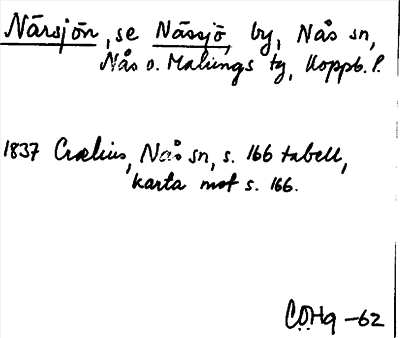 Närsjön, se Nässjö, by, Nås sn,
Nås o. Malungs tg, Koppb. l.
1837 Crælius, Nås sn, s. 166 tabell,
karta mot s. 166.
COHg -62